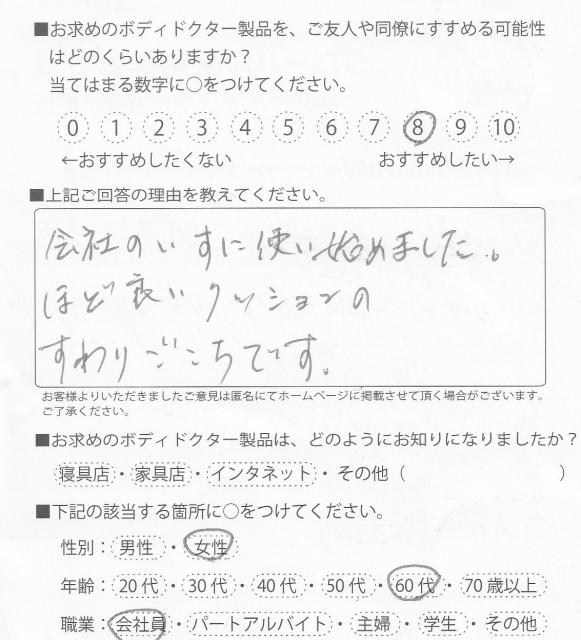 ■お求めのボディドクター製品を、ご友人や同僚にすすめる可能性
はどのくらいありますか？
当てはまる数字に○をつけてください。
0 1 2 3 4 5 6 7 8 9 10
←おすすめしたくない おすすめしたい→
■上記ご回答の理由を教えてください。
会社のいすに使い始めました。
ほど良いクッションの
すわりごこちです。
お客様よりいただきましたご意見は匿名にてホームページに掲載させて頂く場合がございます。
ご了承ください。
■お求めのボディドクター製品は、どのようにお知りになりましたか？
寝具店・家具店・インタネット・その他（ ）
■下記の該当する箇所に○をつけてください。
性別：男性・女性
年齢：20代・30代・40代・50代・60代・70歳以上
職業：会社員・パートアルバイト・主婦・学生・その他